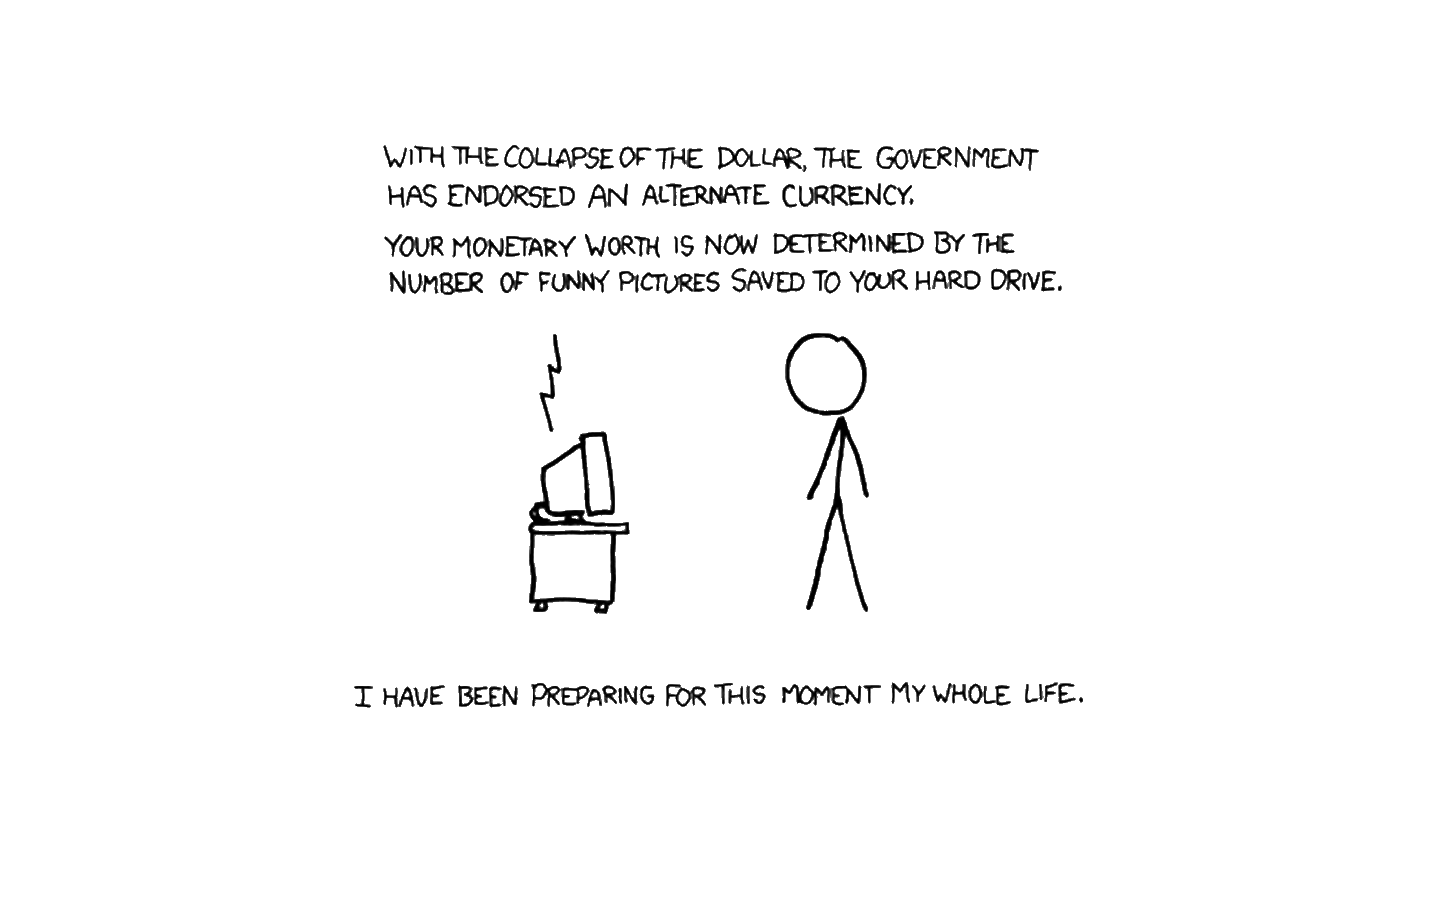 WITH THE COLLAPSE OF THE DOLLAR, THE GOVERNMENT
HAS ENDORSED AN ALTERNATE CURRENCY.
YOUR MONETARY WORTH IS NOW DETERMINED BY THE
NUMBER OF FUNNY PICTURES SAVED TO YOUR HARD DRIVE.
I HAVE BEEN PREPARING FOR THIS MOMENT MY WHOLE LIFE.